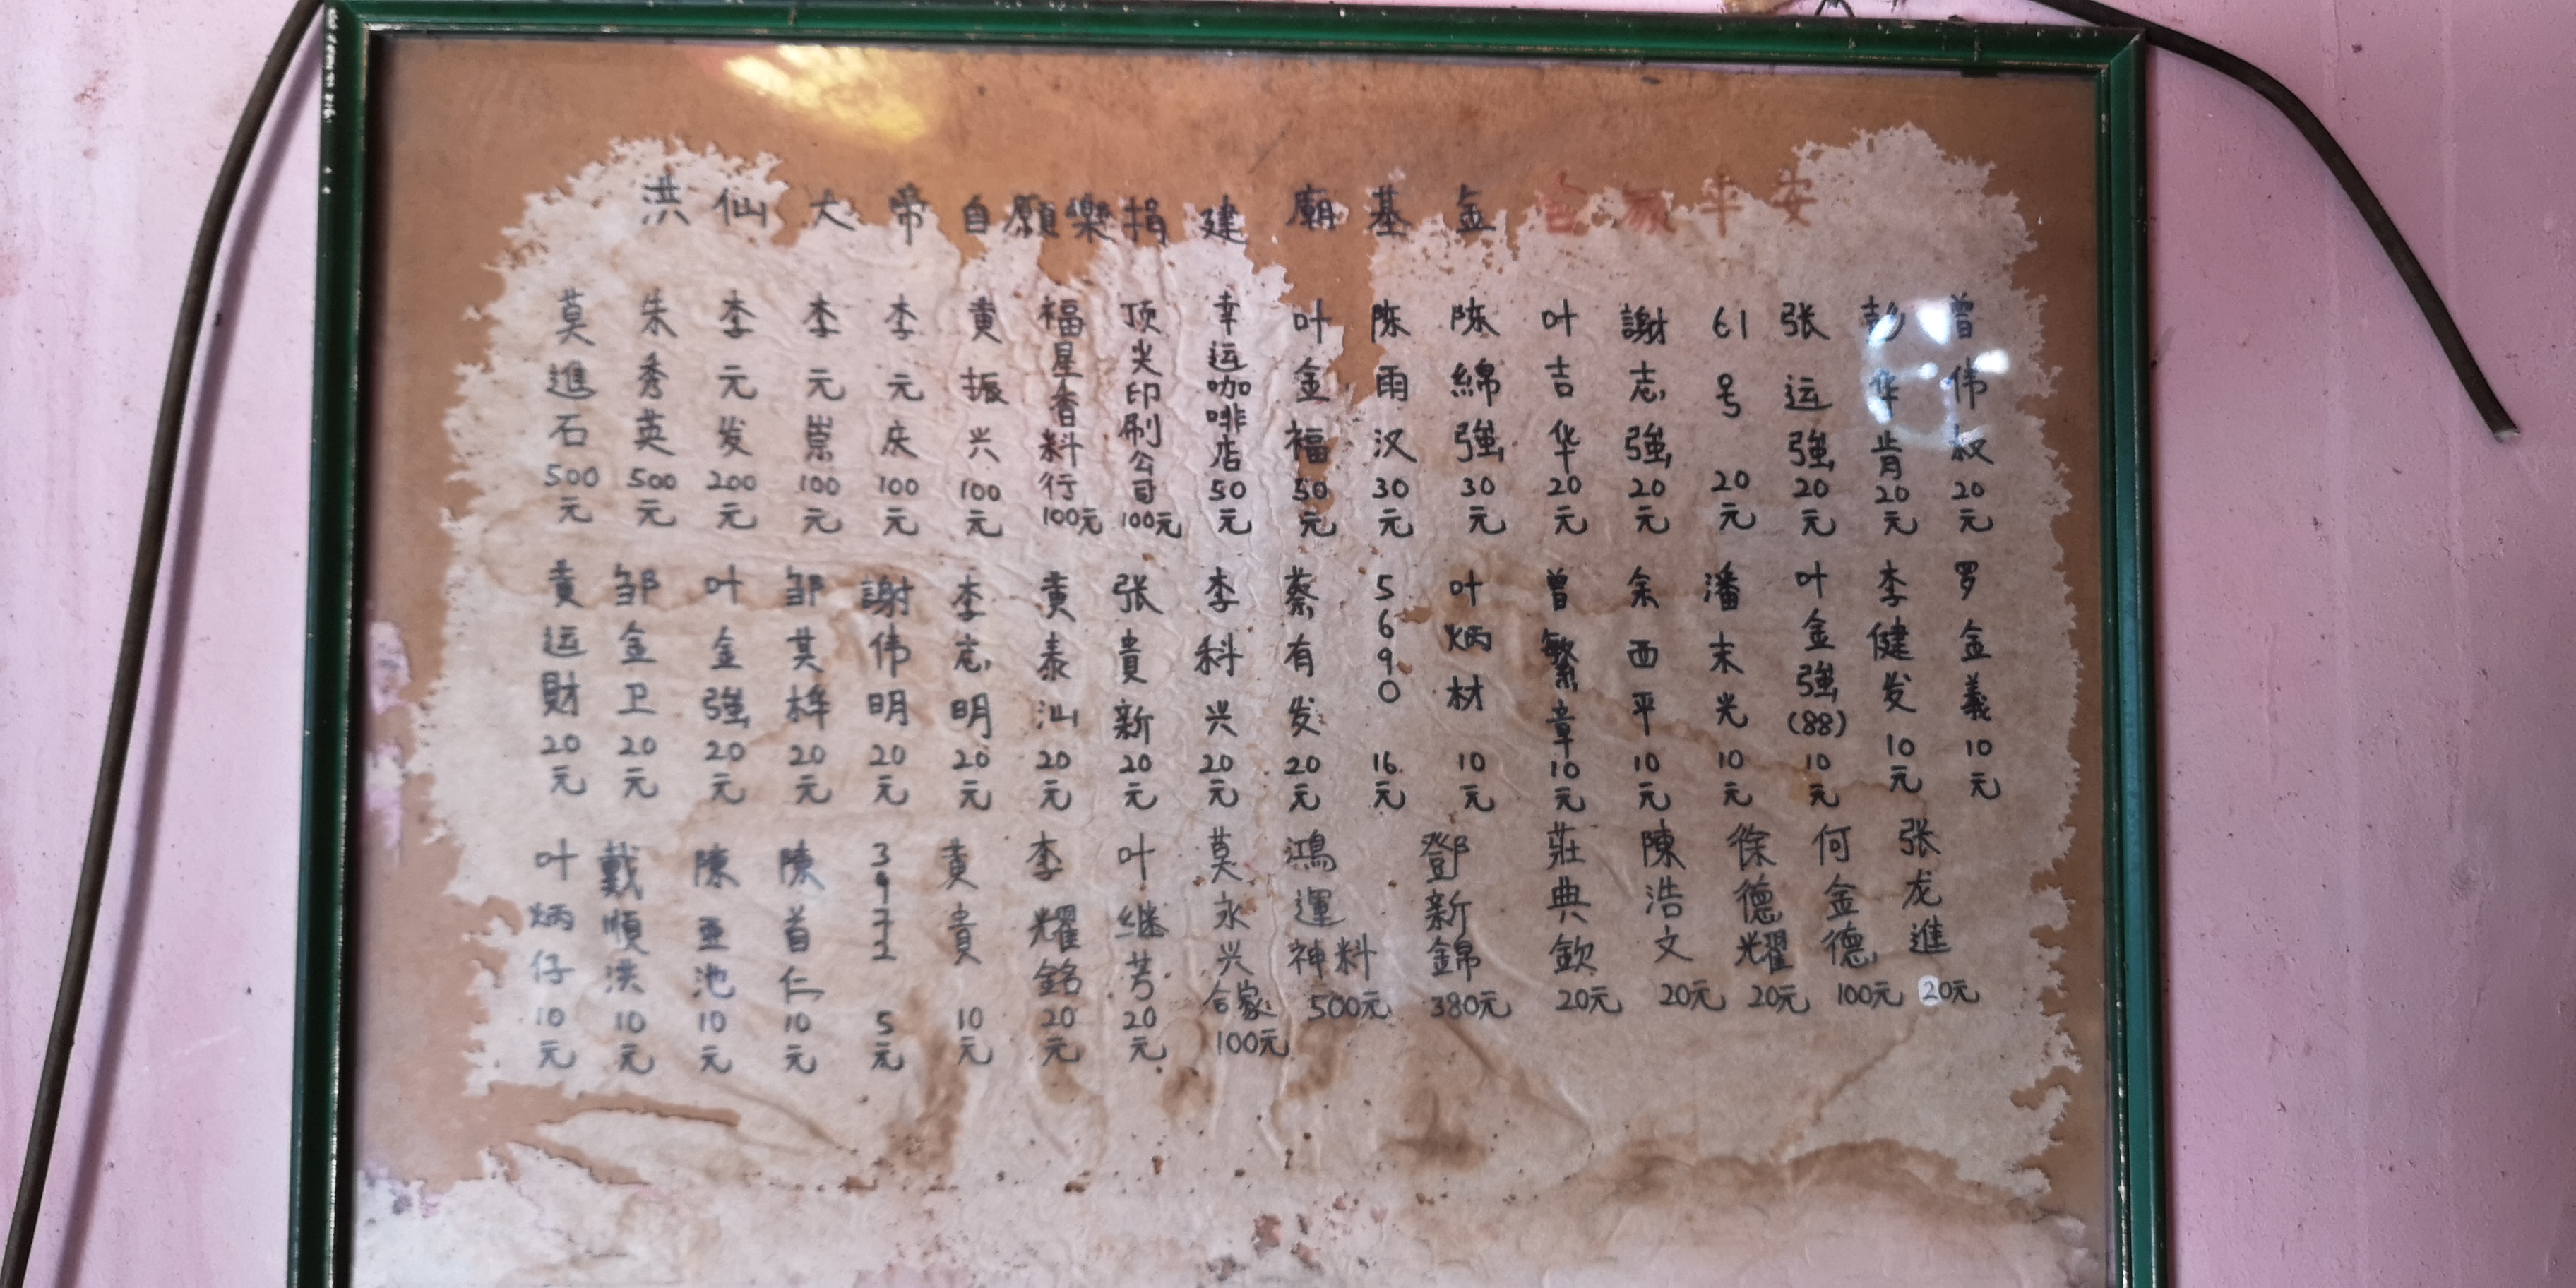 洪仙大帝自願樂捐建廟基金 合家平安
莫進石500元
朱秀英500元
李元发200元
李元崇100元
李元庆100元
黄振兴100元
福星香料行100元
顶尖印刷公司100元
幸运咖啡店50元
叶金福50元
陈雨汉30元
陈綿強30元
叶吉华20元
謝志強20元
61号20元
张运強20元
彭华肯20元
曾伟权20元
黄运財20元
邹金卫20元
叶金強20元
邹其桦20元
謝伟明20元
李志明20元
黄泰汕20元
张貴新20元
李科兴20元
蔡有发20元
5690 16元
叶炳材10元
曾繁章10元
余西平10元
潘末光10元
叶金強(88)10元
李健发10元
罗金義10元
叶炳仔10元
戴順洪10元
陳亚池10元
陳首仁10元
3972 5元
黄貴10元
李耀銘20元
叶继芳20元
莫永兴合家100元
鴻運神料500元
鄧新錦380元
莊典欽20元
陳浩文20元
徐德耀20元
何金德100元
张龙進20元